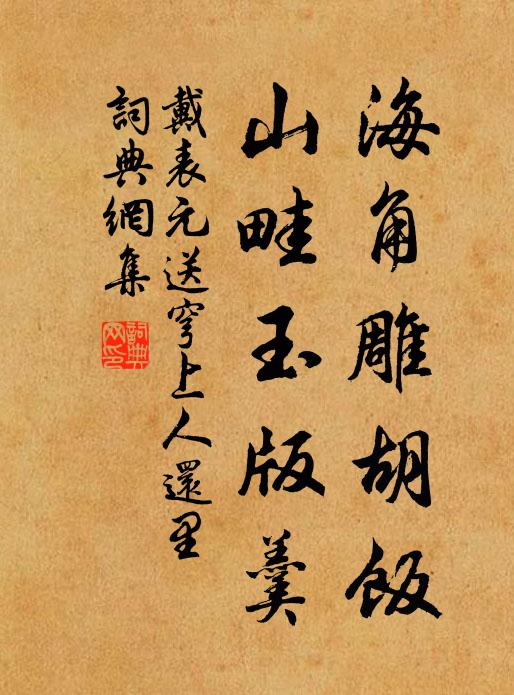 海角雕胡飯
山畦玉版羹
戴表元送穹上人還里
詞典網集
詞典網印